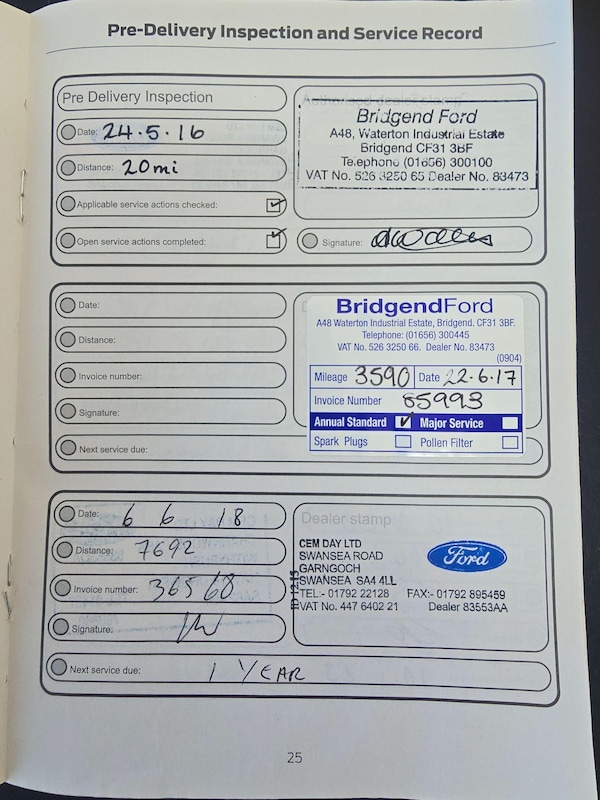 Pre-Delivery Inspection and Service Record
Pre Delivery Inspection
Date: 24.5.16
Distance: 20mi
Applicable service actions checked:
Open service actions completed:
Bridgend Ford
A48, Waterton Industrial Estate
Bridgend CF31 3BF
Telephone (01656) 300100
VAT No. 526 3250 65 Dealer No. 83473
Signature:
Date:
Distance:
Invoice number:
Signature:
Next service due:
BridgendFord
A48 Waterton Industrial Estate, Bridgend. CF31 3BF.
Telephone: (01656) 300445
VAT No. 526 3250 66. Dealer No. 83473
(0904)
Mileage 3590 Date 22.6.17
Invoice Number 85993
Annual Standard Major Service
Spark Plugs Pollen Filter
Date: 6 6 18
Distance: 7692
Invoice number: 36560
Signature:
Next service due: 1 YEAR
Dealer stamp
CEM DAY LTD
SWANSEA ROAD
GARNGOCH
SWANSEA SA4 4LL
TEL:- 01792 22128 FAX:- 01792 895459
VAT No. 447 6402 21 Dealer 83553AA
Ford
25